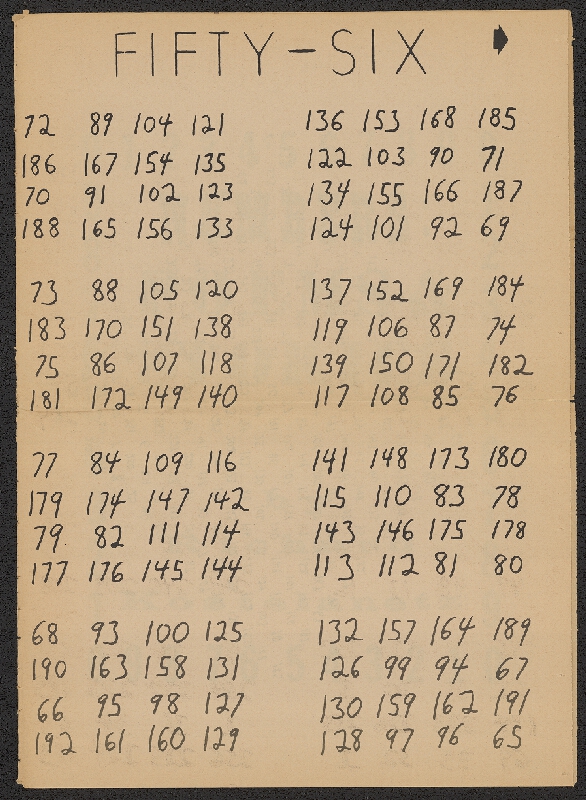 FIFTY-SIX
72 89 104 121 136 153 168 185
186 167 154 135 122 103 90 71
70 91 102 123 134 155 166 187
188 165 156 133 124 101 92 69
73 88 105 120 137 152 169 184
183 170 151 138 119 106 87 74
75 86 107 118 139 150 171 182
181 172 149 140 117 108 85 76
77 84 109 116 141 148 173 180
179 174 147 142 115 110 83 78
79 82 111 114 143 146 175 178
177 176 145 144 113 112 81 80
68 93 100 125 132 157 164 189
190 163 158 131 126 99 94 67
66 95 98 127 130 159 162 191
192 161 160 129 128 97 96 65